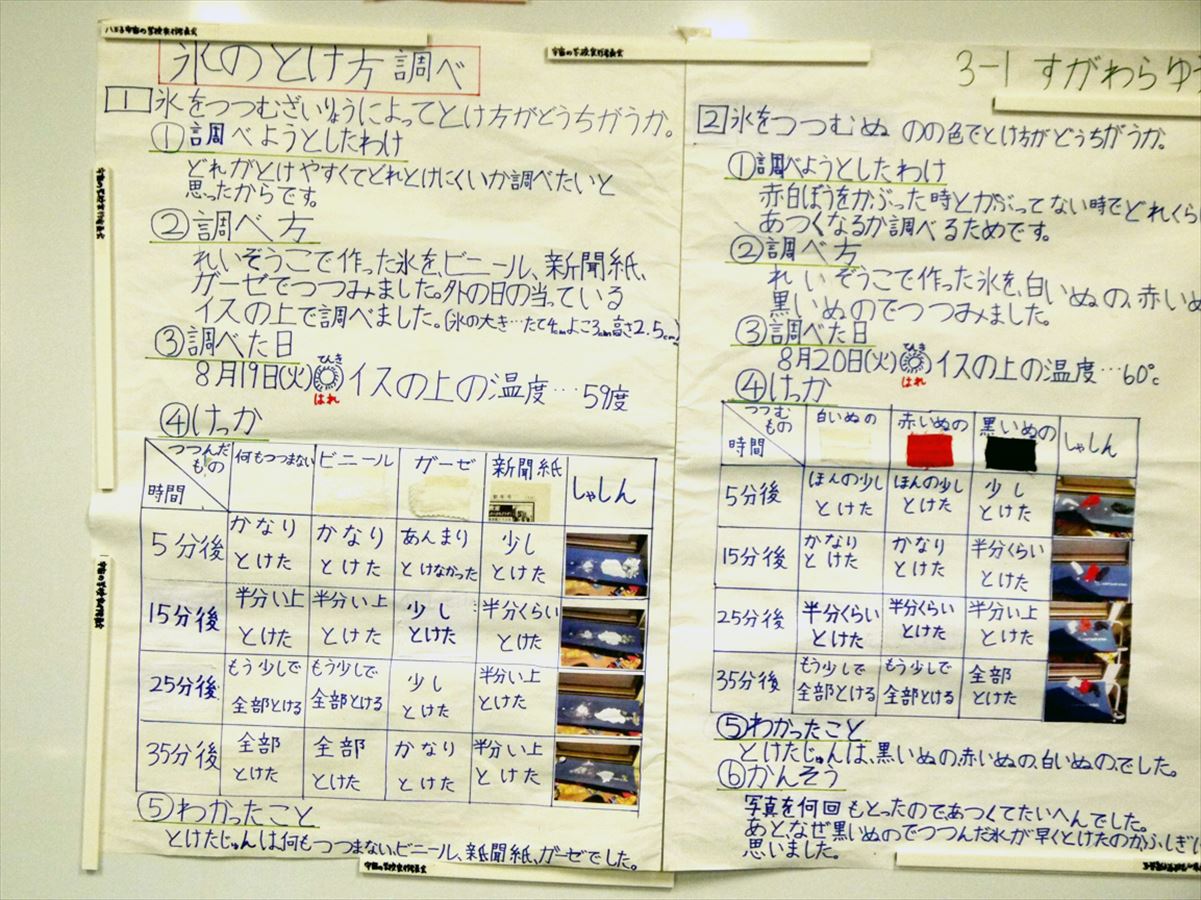 氷のとけ方調べ
1 氷をつつむざいりょうによってとけ方がどうちがうか。
①調べようとしたわけ
どれがとけやすくてどれとけにくいか調べたいと
思ったからです。
②調べ方
れいぞうこで作った氷を、ビニール、新聞紙、
ガーゼでつつみました。外の日の当っている
イスの上で調べました。(氷の大き…たて4cmよこ3cm高さ2.5cm)
③調べた日
8月19日(火) てんき はれ イスの上の温度…59度
④けっか
つつんだもの 時間 何もつつまない ビニール ガーゼ 新聞紙 しゃしん
5分後 かなりとけた かなりとけた あんまりとけなかった 少しとけた
15分後 半分い上とけた 半分い上とけた 少しとけた 半分くらいとけた
25分後 もう少しで全部とける もう少しで全部とける 少しとけた 半分い上とけた
35分後 全部とけた 全部とけた かなりとけた 半分い上とけた
⑤わかったこと
とけたじゅんは何もつつまない、ビニール、新聞紙、ガーゼでした。
3-1 すがわらゆう
2 氷をつつむぬのの色でとけ方がどうちがうか。
①調べようとしたわけ
赤白ぼうをかぶった時とかぶってない時でどれくら
あつくなるか調べるためです。
②調べ方
れいぞうこで作った氷を、白いぬの、赤いぬ
黒いぬのでつつみました。
③調べた日
8月20日(火) てんき はれ イスの上の温度…60℃
④けっか
つつむもの 時間 白いぬの 赤いぬの 黒いぬの しゃしん
5分後 ほんの少しとけた ほんの少しとけた 少しとけた
15分後 かなりとけた かなりとけた 半分くらいとけた
25分後 半分くらいとけた 半分くらいとけた 半分い上とけた
35分後 もう少しで全部とける もう少しで全部とける 全部とけた
⑤わかったこと
とけたじゅんは、黒いぬの、赤いぬの、白いぬの、でした。
⑥かんそう
写真を何回もとったので、あつくてたいへんでした。
あと、なぜ黒いぬのでつつんだ氷が早くとけたのかふしぎに
思いました。